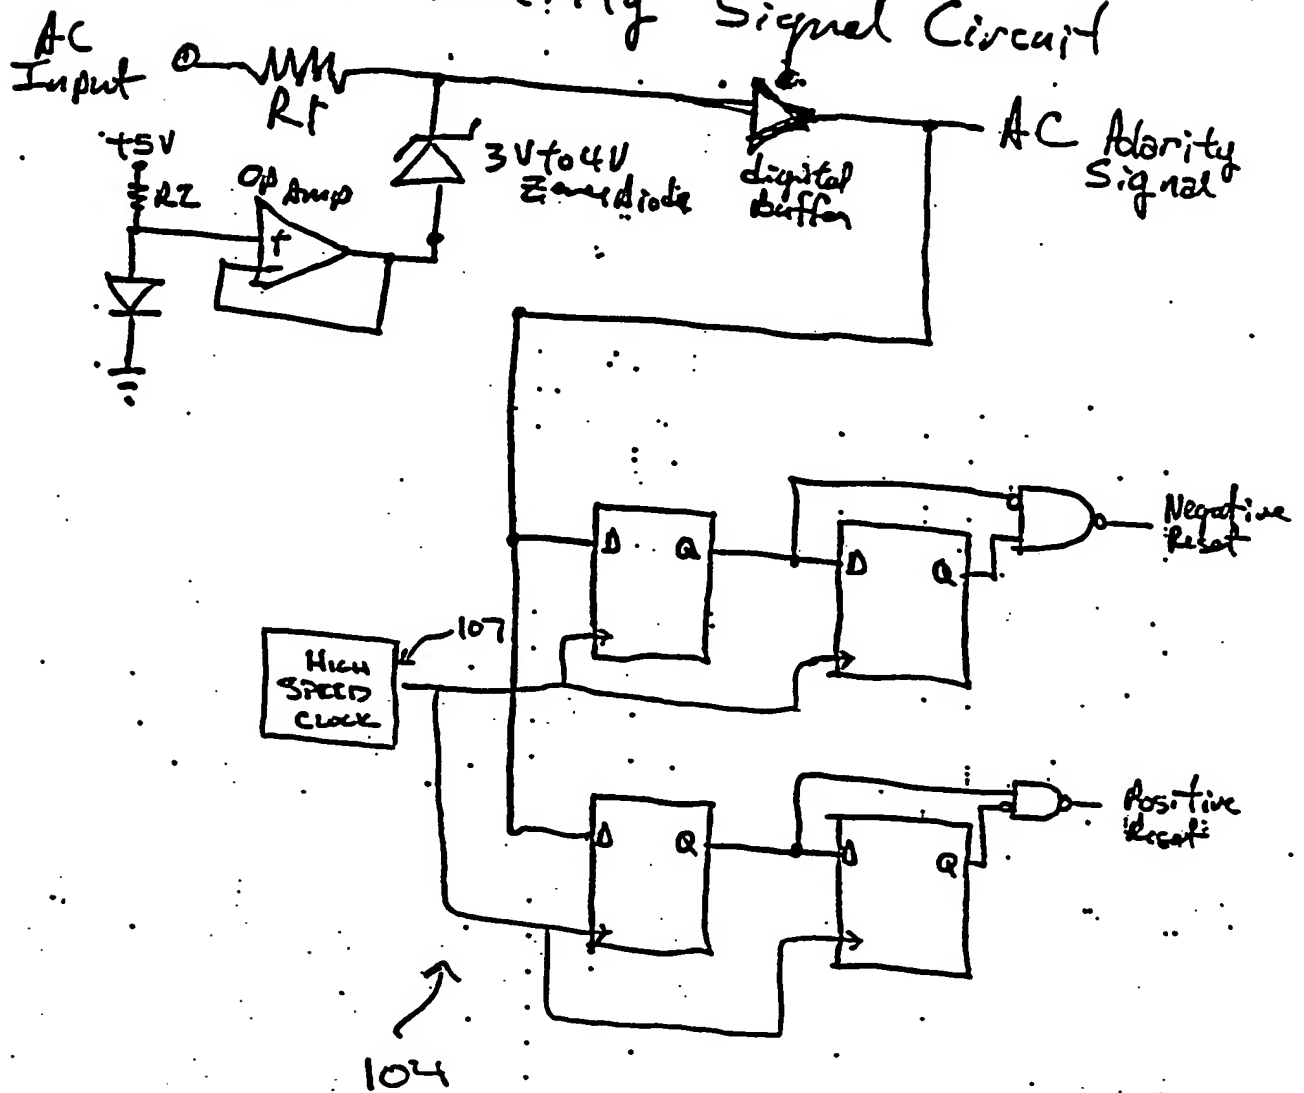 Signal Circuit
AC
Input
R1
+5V
R2
Op Amp
+
-
3V to 4V
Zener Diode
digital
Buffer
AC Polarity
Signal
D Q
D Q
Negative
Reset
107
HIGH
SPEED
CLOCK
D Q
D Q
Positive
Reset
104